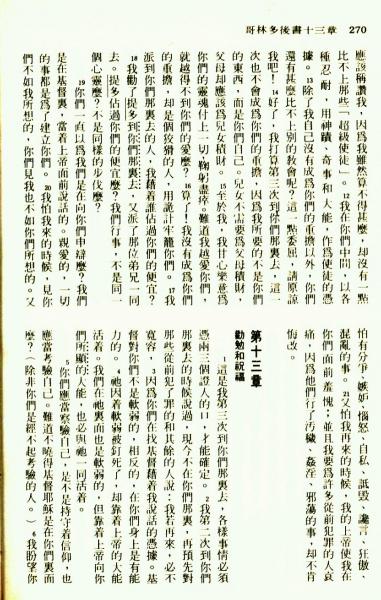 哥林多後書十三章 270
應該稱讚我，因為我雖然算不得甚麼，却沒有一點
比不上那些「超級使徒」。12我在你們中間，以各
種忍耐，用神蹟、奇事和大能，作為使徒的憑
據。13除了我自己沒有成為你們的重擔以外，你們
還有甚麼比不上別的教會呢？這一點委屈，請原諒
我吧！14好了，我打算第三次到你們那裏去，這一
次也不會成為你們的重擔，因為我所要的不是你們
的東西，而是你們自己。兒女不需要為父母積財，
父母却應該為兒女積財。15至於我，我甘心樂意為
你們的靈魂付上一切，鞠躬盡瘁。難道我越愛你們，
就越得不到你們的愛麼？16算了！我沒有成為你們
的重擔，却是個狡猾的人，用詭計牢籠你們。17我
派到你們那裏去的人，我藉着誰佔過你們的便宜？
18我勸了提多到你們那裏去，又派了那位弟兄一同
去。提多佔過你們的便宜麼？我們行事，不是同一
個心靈麼？不是同樣的步伐麼？
19你們一直以為我們是在向你們申辯麼？我們
是在基督裏，當着上帝面前說話的。親愛的，一切
的事都是為了建立你們。20我怕我來的時候，見你
們不如我所想的，你們見我也不如你們所想的。又
怕有分爭、嫉妒、惱怒、自私、詆毀、讒言、狂傲、
混亂的事。21又怕我再來的時候，我的上帝使我在
你們面前羞愧；並且我要為許多從前犯罪的人哀
痛，因為他們行了汚穢、姦淫、邪蕩的事，却不肯
悔改。
第十三章
勸勉和祝福
1這是我第三次到你們那裏去，各樣事情必須
憑兩三個證人的口，才能確定。2我第二次到你們
那裏去的時候說過，現今不在你們那裏，再預先對
那些從前犯了罪的和其餘的人說：我若再來，必不
寬容，3因為你們在找基督藉着我說話的憑據。基
督對你們不是軟弱的，相反的，在你們身上是有能
力的。4祂因着軟弱被釘死了，却靠着上帝的大能
活着。我們在祂裏面也是軟弱的，但靠着上帝向你
們所顯的大能，也必與祂一同活着。
5你們應當察驗自己，是不是持守着信仰，也
應當考驗自己。難道不曉得基督耶穌是在你們裏面
麼？（除非你們是經不起考驗的人。）6我盼望你